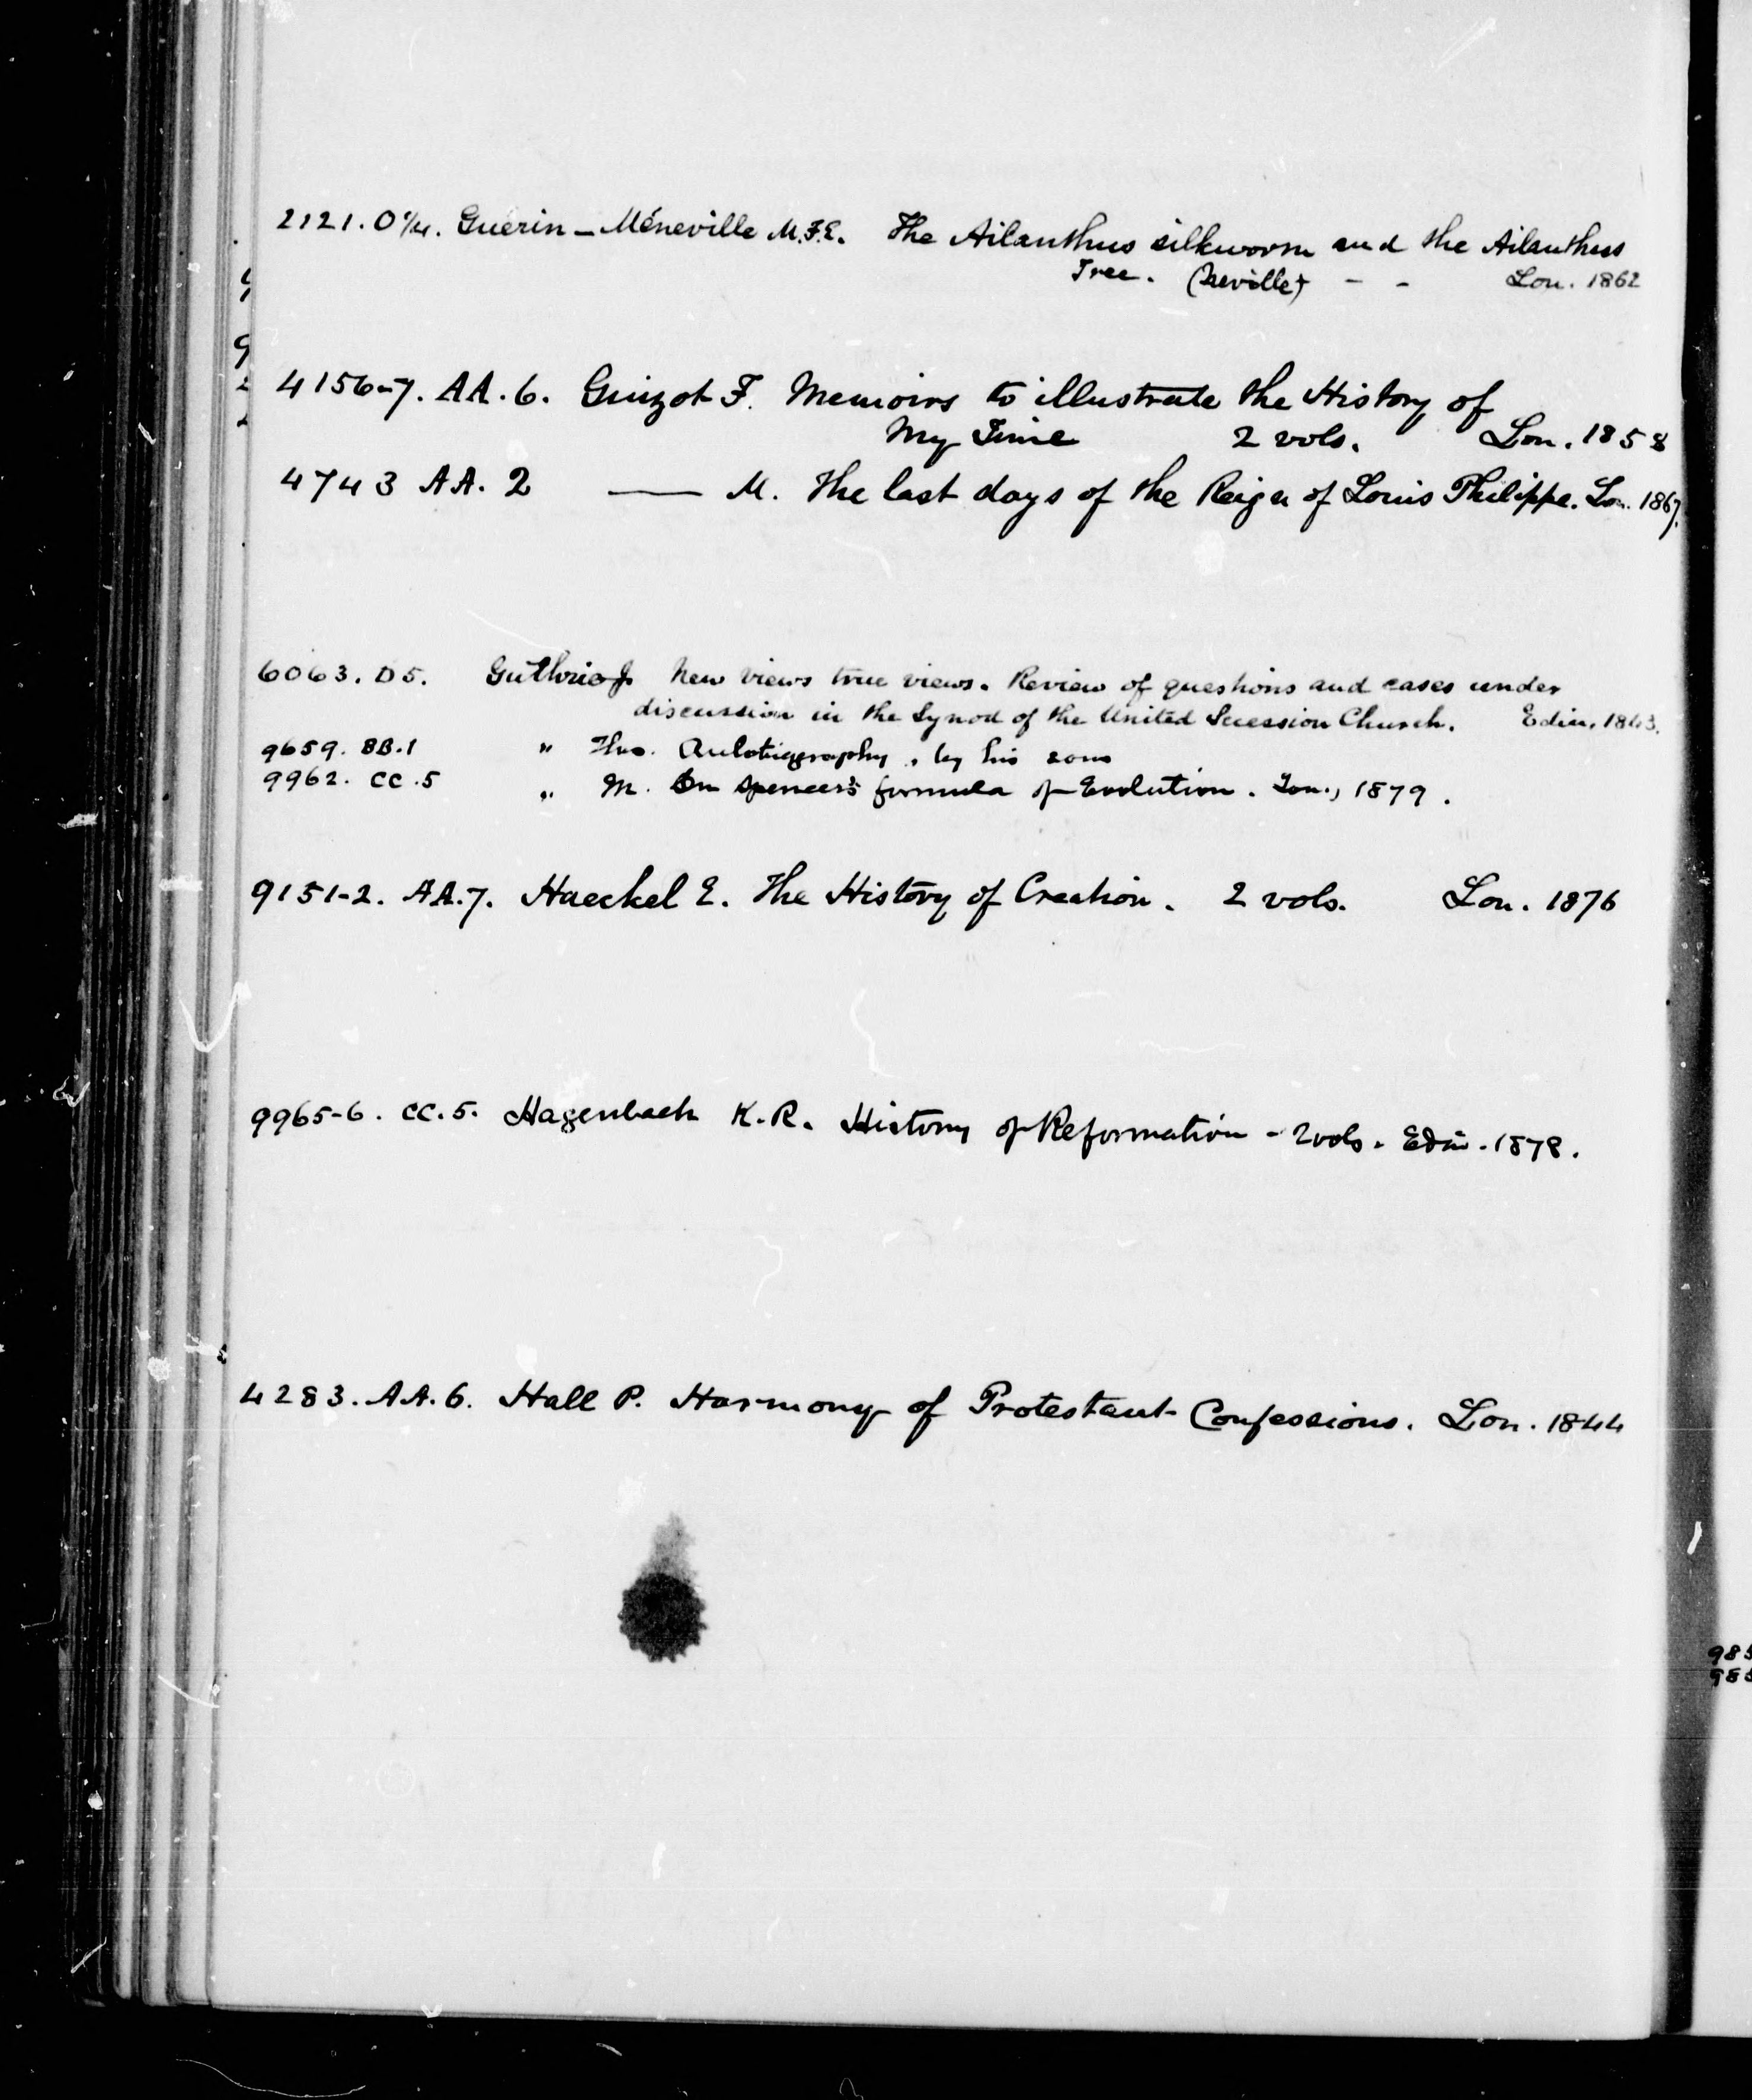 2121. O 1/4. Guerin - Méneville M.F.E. The Ailanthus silkworm and the Ailanthus
Tree. (Neville) - - Lon. 1862
4156-7. AA. 6. Guizot F. Memoirs to illustrate the History of
My Time 2 vols. Lon. 1858
4743 AA. 2 —— M. The last days of the Reign of Louis Philippe. Lon. 1867.
6063. D5. Guthrie J. New views true views. Review of questions and cases under
discussion in the Synod of the United Secession Church. Edin. 1843.
9659. BB.1 " Thos. Autobiography, by his sons
9962. CC.5 " M. On Spencer's formula of Evolution. Lon., 1879.
9151-2. AA.7. Haeckel E. The History of Creation. 2 vols. Lon. 1876
9965-6. CC.5. Hagenbach K.R. History of Reformation - 2 vols. Edin. 1878.
4283. AA. 6. Hall P. Harmony of Protestant Confessions. Lon. 1844